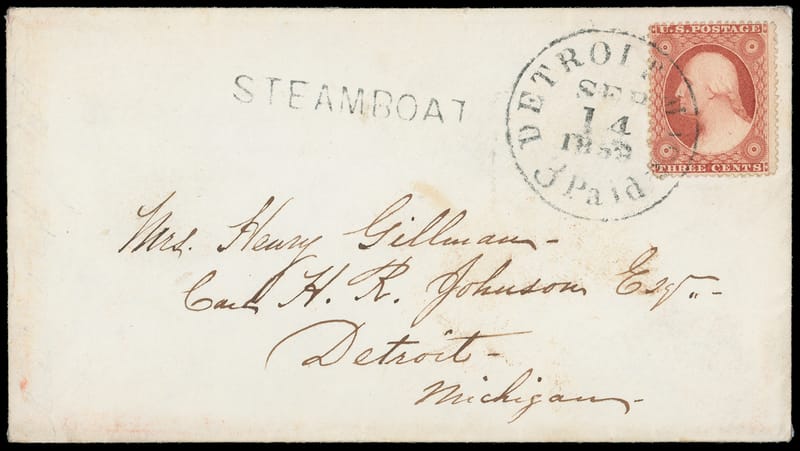 STEAMBOAT
DETROIT
SEP
14
3 Paid
U.S. POSTAGE
THREE CENTS
Mrs. Henry Gillman-
Care H. R. Johnson Esqr.-
Detroit-
Michigan-